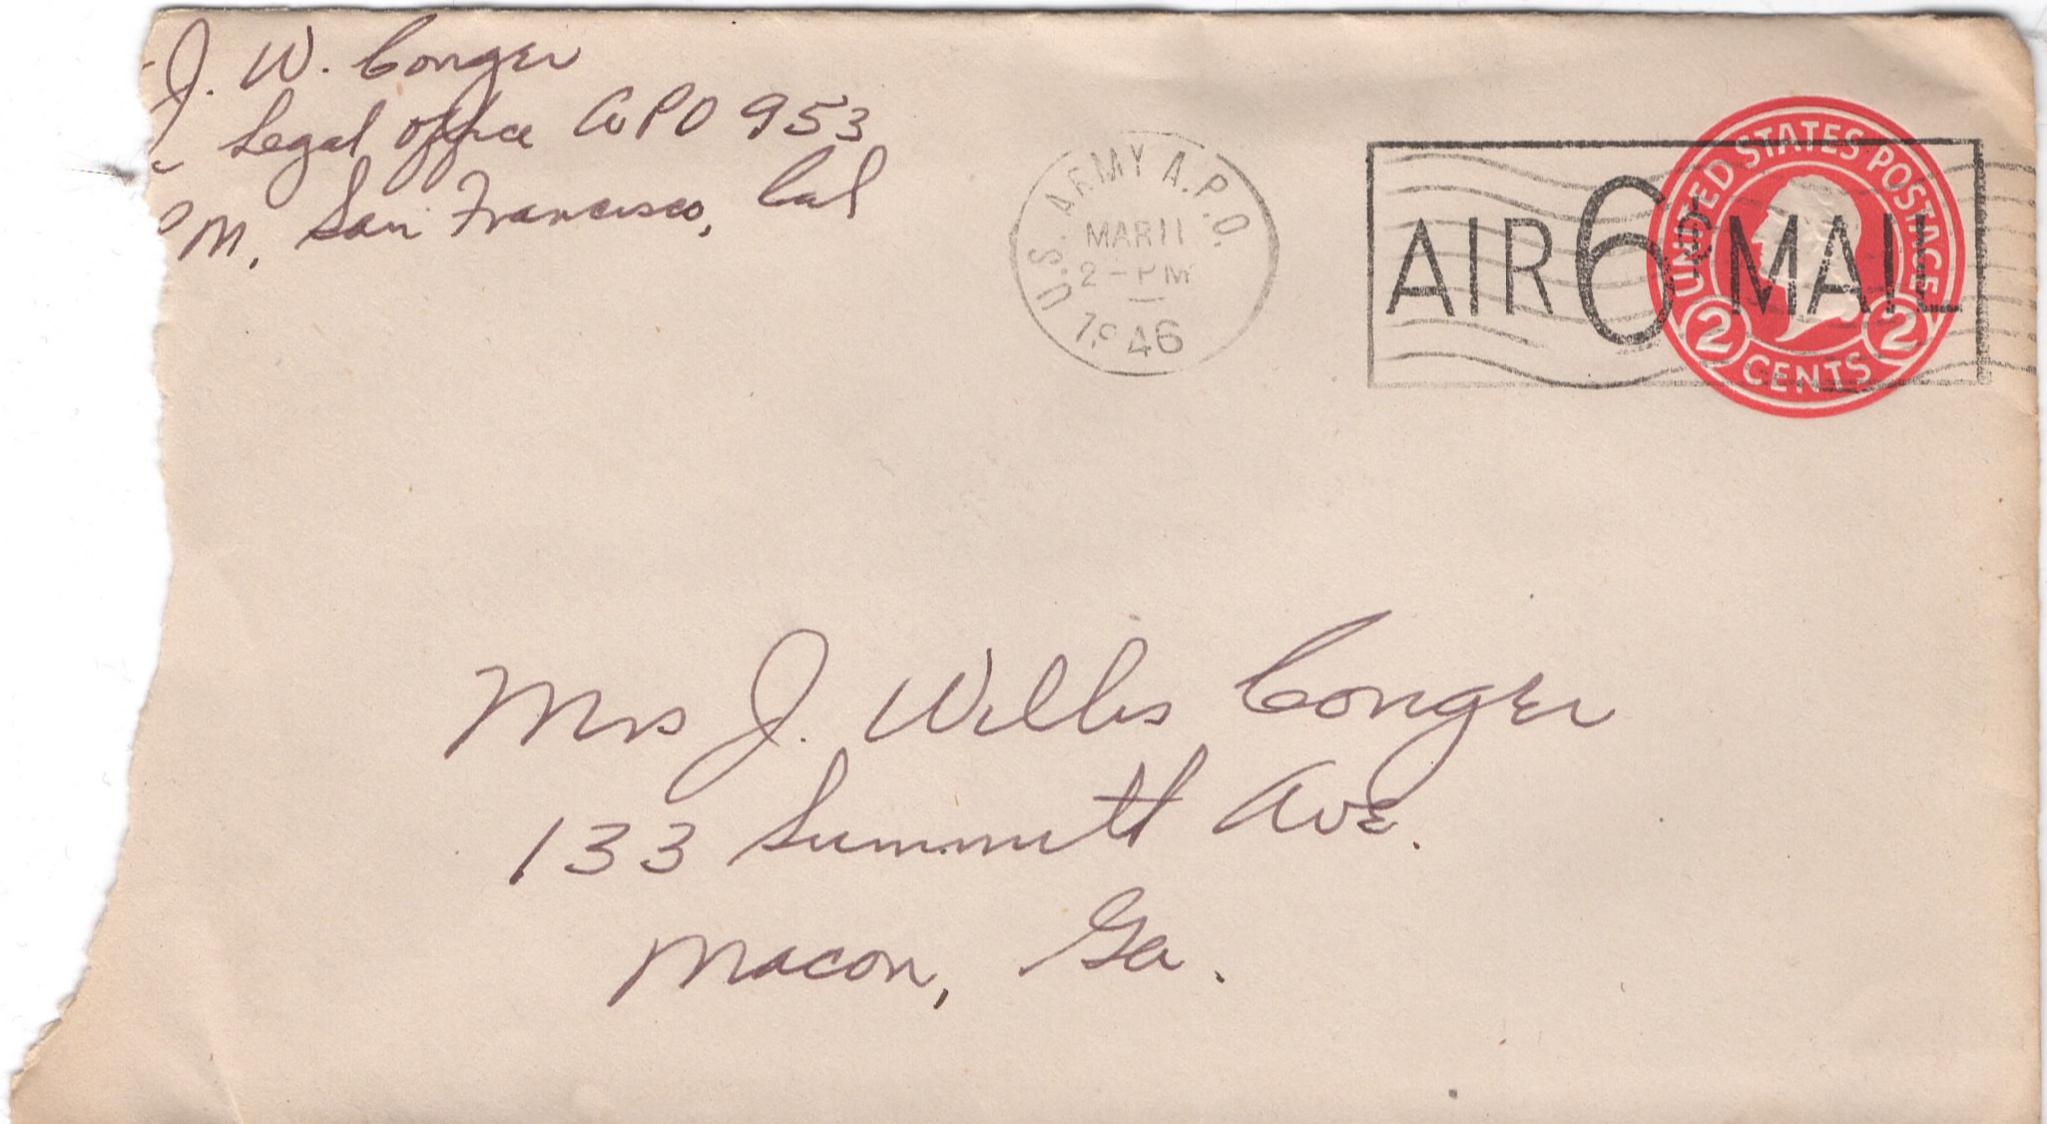 J. W. Conger
Legal Office APO 953
PM, San Francisco, Cal
U.S. ARMY A.P.O.
MAR 11
2 - PM
1946
AIR 6¢ MAIL
UNITED STATES POSTAGE
2 CENTS 2
Mrs J. Willis Conger
133 Summitt Ave.
Macon, Ga.